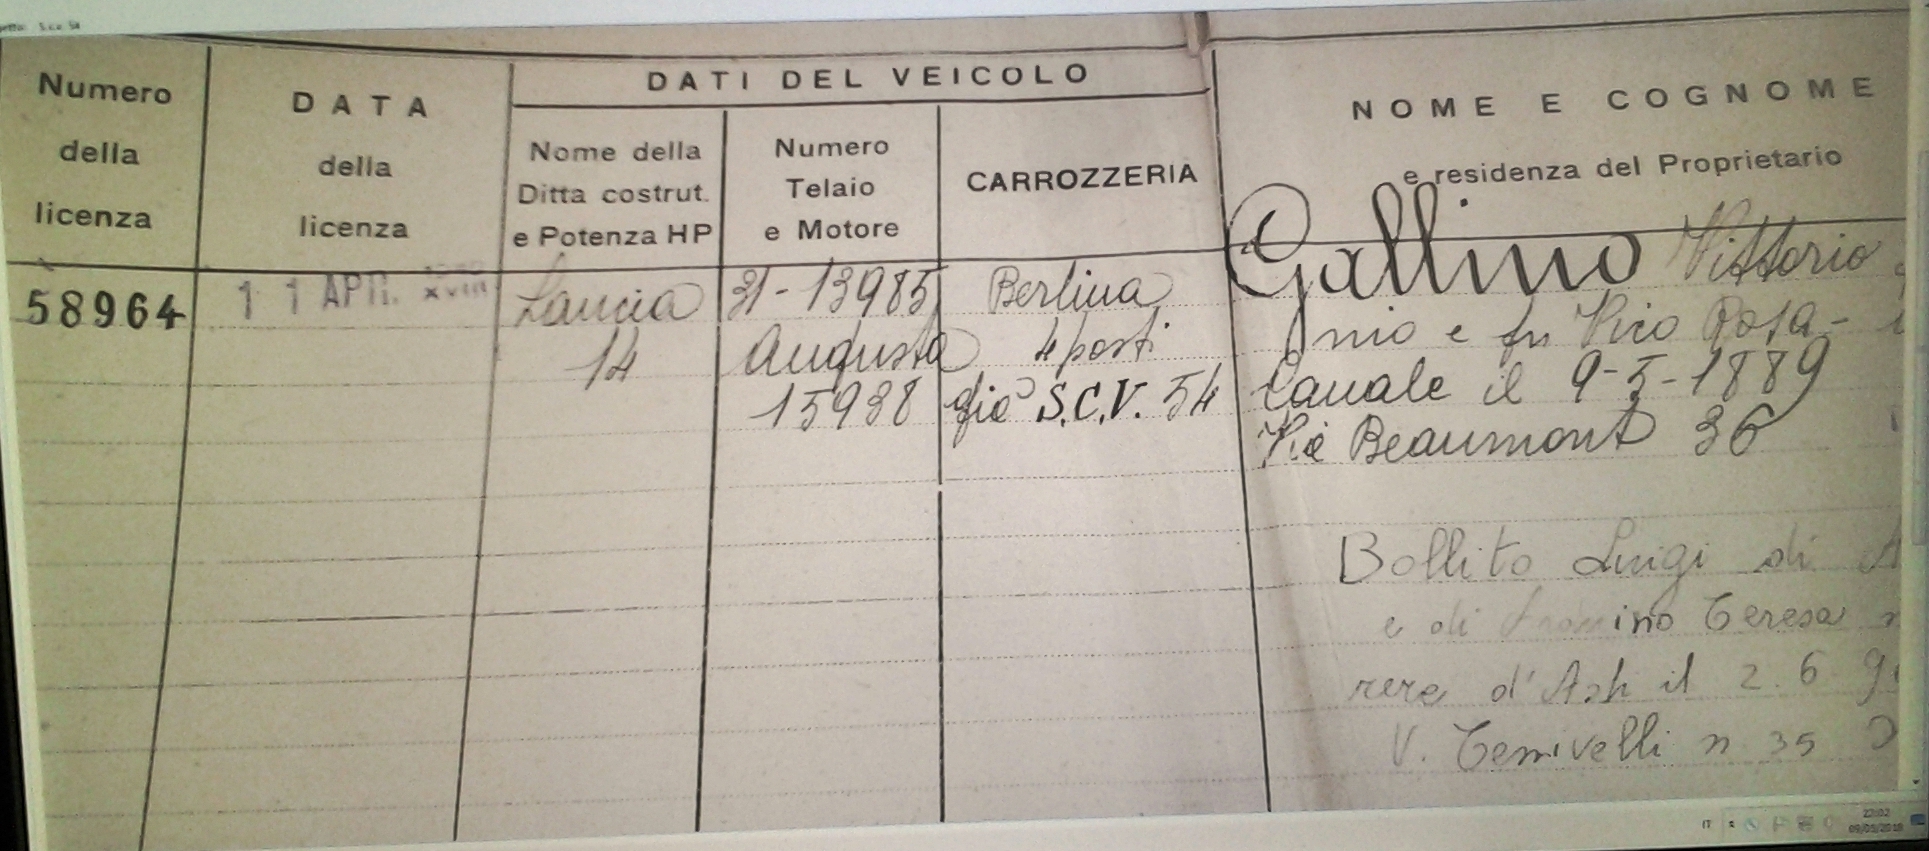 Numero della licenza
DATA della licenza
DATI DEL VEICOLO
Nome della Ditta costrut. e Potenza HP
Numero Telaio e Motore
CARROZZERIA
NOME E COGNOME
e residenza del Proprietario
58964
11 APR. XVIII
Lancia
14
31-13985
Augusta
15938
Berlina
4 posti
già S.C.V. 54
Gallino Vittorio
e fu Vico Rosa -
Canale il 9-5-1889
Via Beaumont 36
Bollito Luigi di A
e di Teresa
d'Asti il 2.6
V. n 35
IT
22:02
09/05/2018